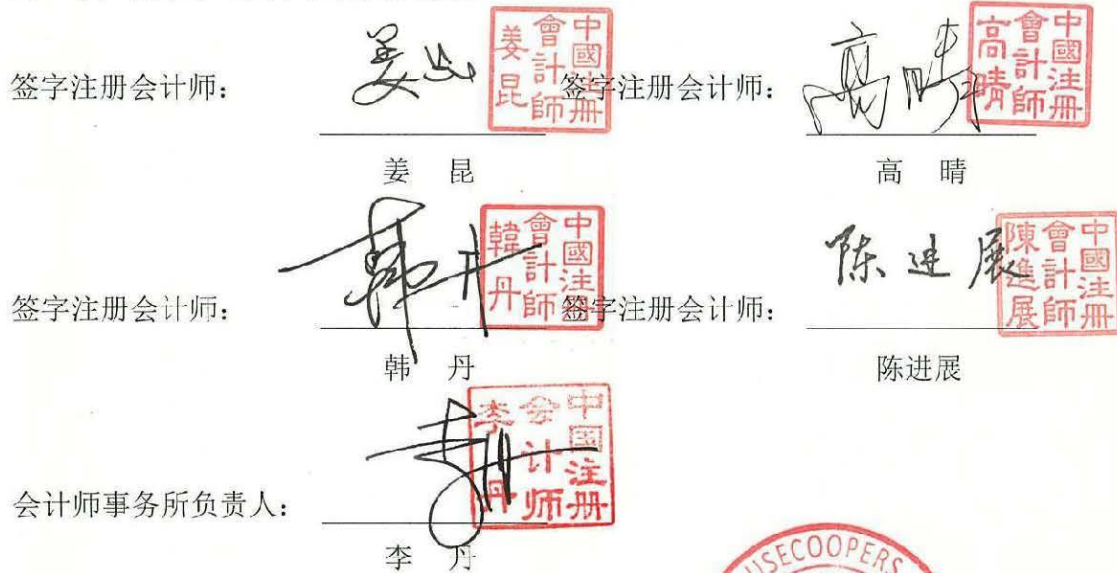 签字注册会计师： 姜昆 中國注册會計師姜昆 签字注册会计师： 高晴 中國注册會計師高晴
姜 昆 高 晴
签字注册会计师： 韩丹 中國注册會計師韓丹 签字注册会计师： 陈进展 中國注册會計師陳進展
韩 丹 陈进展
会计师事务所负责人： 李丹 中国注册会计师李丹
李 丹
USECOOPERS